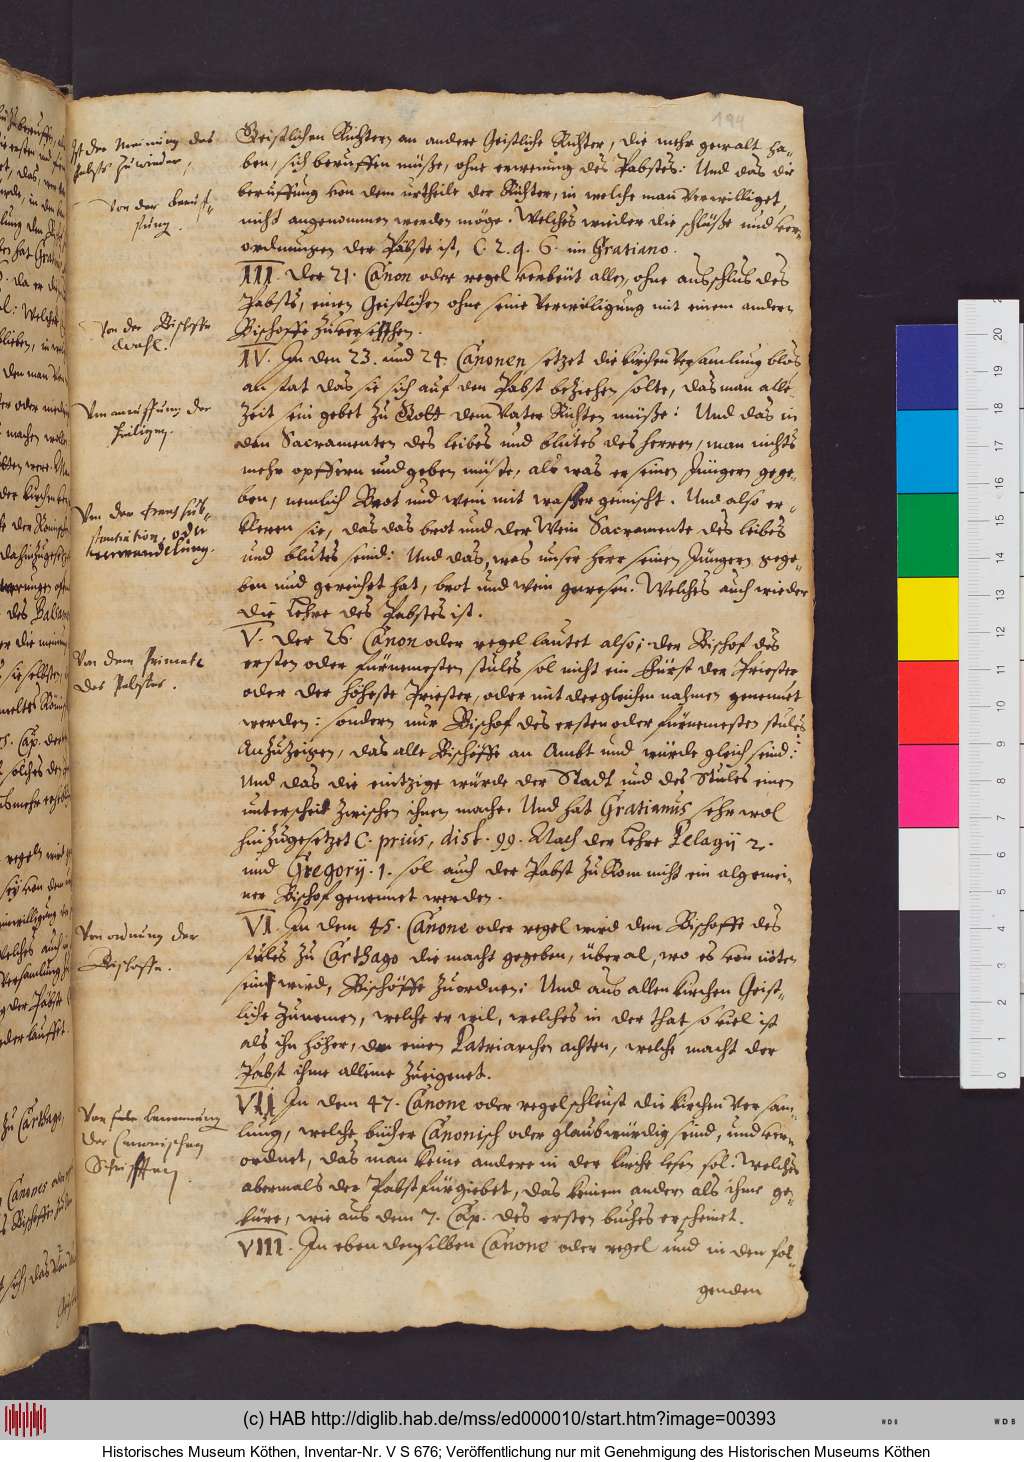 194
Ist der Meinung des
Pabsts zu wieder,
Geistlichen Richtern an andere Geistliche Richter, die mehr gewalt ha-
ben, sich beruffen müße, ohne erwenung des Pabstes: Und das die
Von der beruf-
fung.
beruffung von dem urtheile der Richter, in welche man verwilliget,
nicht angenommen werden möge. Welches wieder die schlüße und ver-
ordnungen der Päbste ist, C. 2. q. 6. in Gratiano.
III. Der 21. Canon oder regel verbeut allen, ohne ausschlus des
Pabsts, einen Geistlichen ohne seine verwilligung mit einem andern
Von der Bischoffe
Wahl.
Bischoffe zu
IV. In den 23. und 24. Canonen setzet die kirchen versamlung blos
an stat das sie sich auf den Pabst beziehen solte, das man alle
Von anruffung der
heiligen.
Zeit sein gebet zu Gott dem Vater Richten müße: Und das in
den Sacramenten des leibes und blutes des herren, man nichts
mehr opffern und geben müste, als was er seinen Jüngern gege-
Von der transsub-
stantiation, oder
verwandelung.
ben, nemlich Brot und wein mit waßer gemischt. Und also er-
kleren sie, das das brot und der Wein Sacramente des leibes
und blutes seind: Und das, was unser herr seinen Jüngern gege-
ben und gereichet hat, brot und wein gewesen. Welches auch wieder
die Lehre des Pabstes ist.
V. Der 26. Canon oder regel lautet also; der Bischof des
Von dem Primate
des Pabstes.
ersten oder fürnemesten stules sol nicht ein Fürst der Priester
oder der höheste Priester, oder mit dergleichen nahmen genennet
werden: sondern nur Bischof des ersten oder fürnemesten stules
Anzuzeigen, das alle Bischöffe an Ambt und würde gleich seind:
Und das die eintzige würde der Stadt und des Stules einen
unterscheid zwischen ihnen mache. Und hat Gratianus sehr wol
hinzugesetzet C. prius, dist. 99. Nach der Lehre Pelagij 2.
und Gregorij. 1. sol auch der Pabst zu Rom nicht ein algemei-
ner Bischof genennet werden.
Von ordnung der
Bischoffe.
VI. In dem 45. Canone oder regel wird dem Bischoffe des
stules zu Carthago die macht gegeben, überal, wo es von nöten
sein wird, Bischöffe zuordnen: Und aus allen kirchen Geist-
liche zunemen, welche er wil, welches in der that so viel ist
als ihn höher, den einen Patriarchen achten, welche macht der
Pabst ihme alleine zueigenet.
Von
der Canonischen
Schrifften.
VII In dem 47. Canone oder regel schleust die kirchen versam-
lung, welche bücher Canonisch oder glaubwürdig seind, und ver-
ordnet, das man keine andere in der kirche lesen sol. Welches
abermals der Pabst fürgiebet, das keinem andern als ihme ge-
büre, wie aus dem 7. Cap. des ersten buches erscheinet.
VIII. In eben demselben Canone oder regel und in den fol-
genden
(c) HAB http://diglib.hab.de/mss/ed000010/start.htm?image=00393
Historisches Museum Köthen, Inventar-Nr. V S 676; Veröffentlichung nur mit Genehmigung des Historischen Museums Köthen